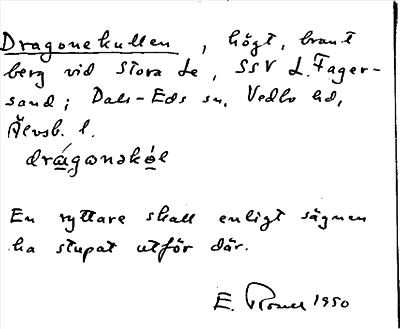 Dragonekullen, högt, brant
berg vid Stora Le, SSV L. Fager-
sand; Dals-Eds sn, Vedbo hd,
Älvsb. l.
dragonekol
En ryttare skall enligt sägnen
ha stupat utför där.
E. 1950